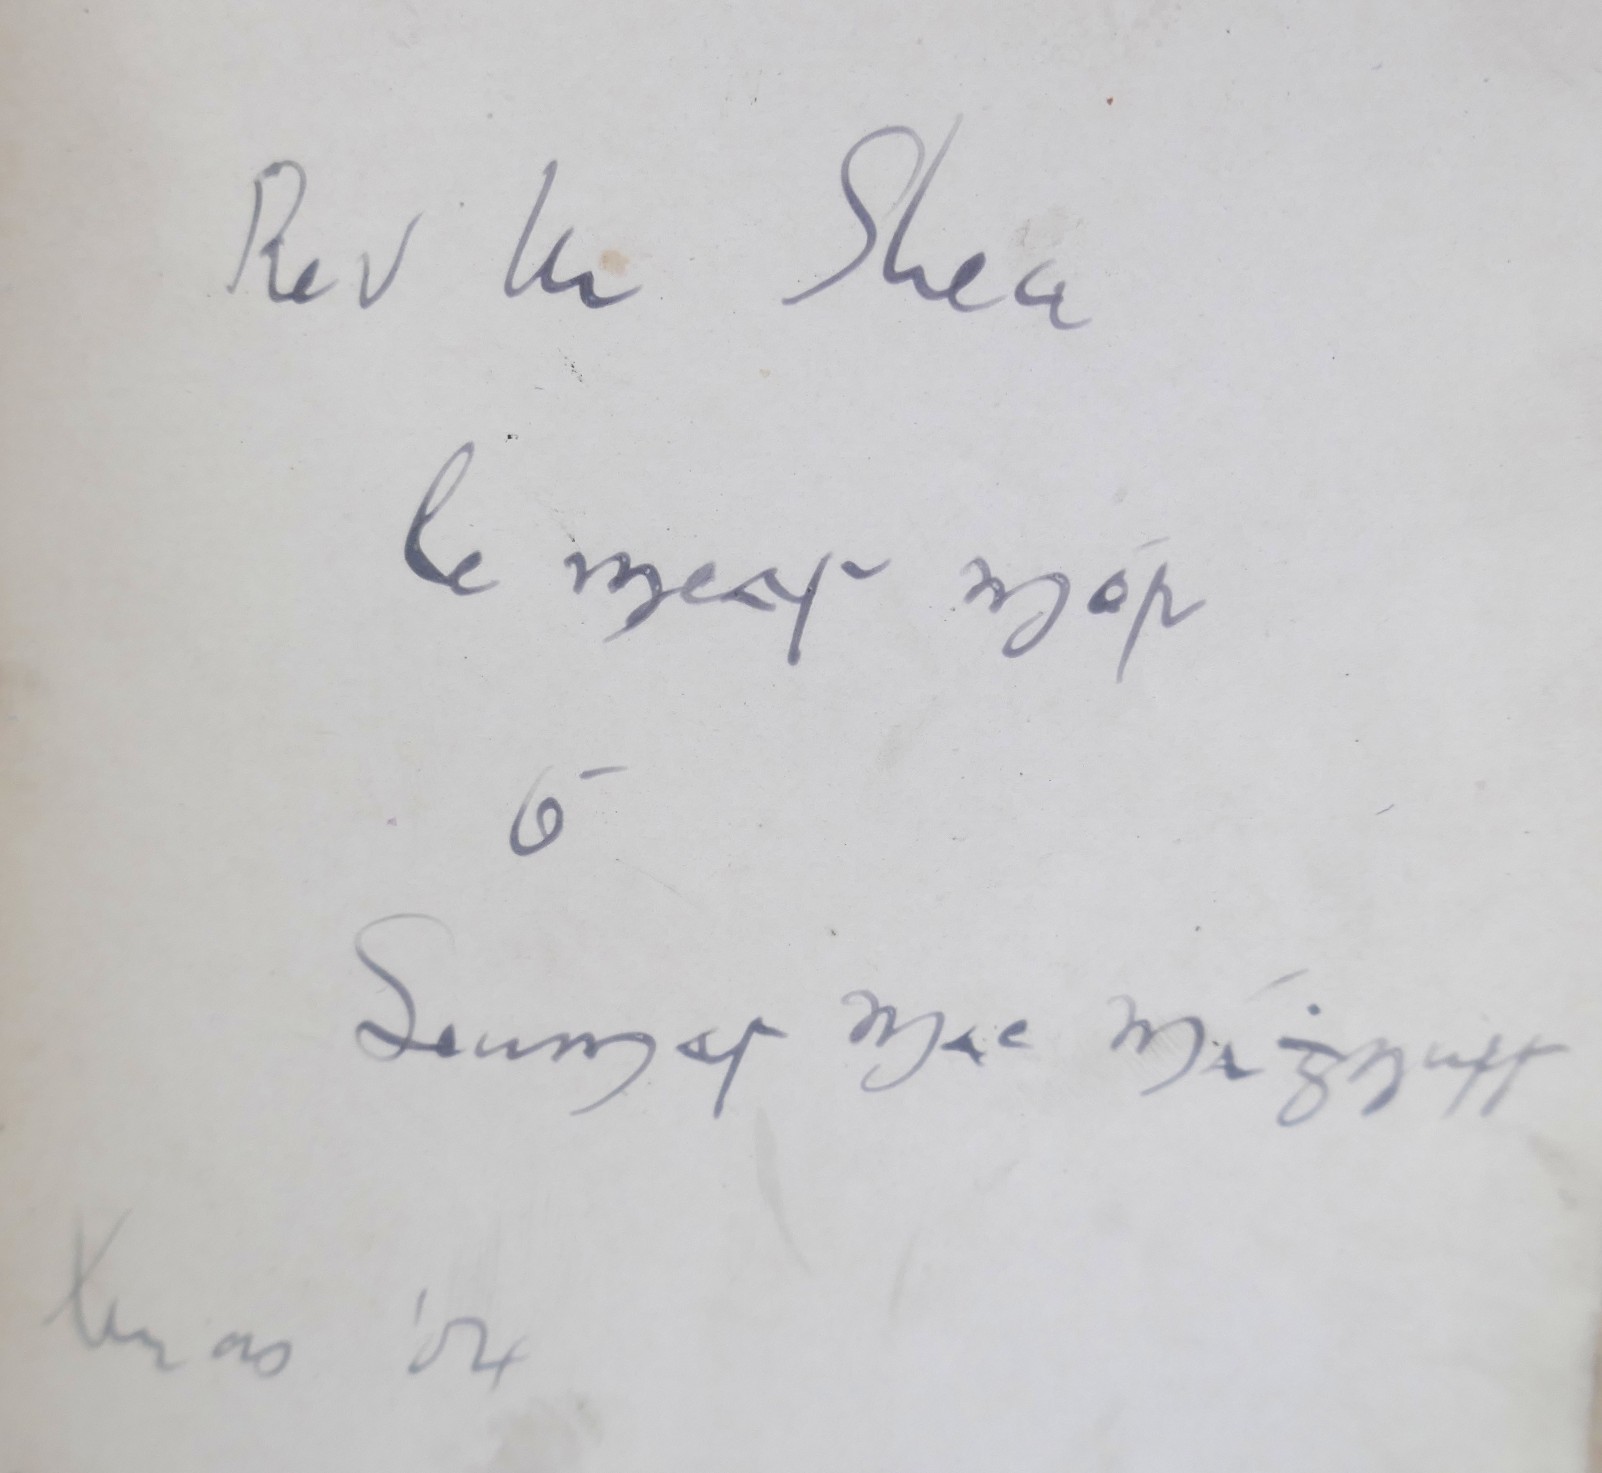 Rev Mr Shea
le meas mór
ó
Seumas Mac
Xmas '04